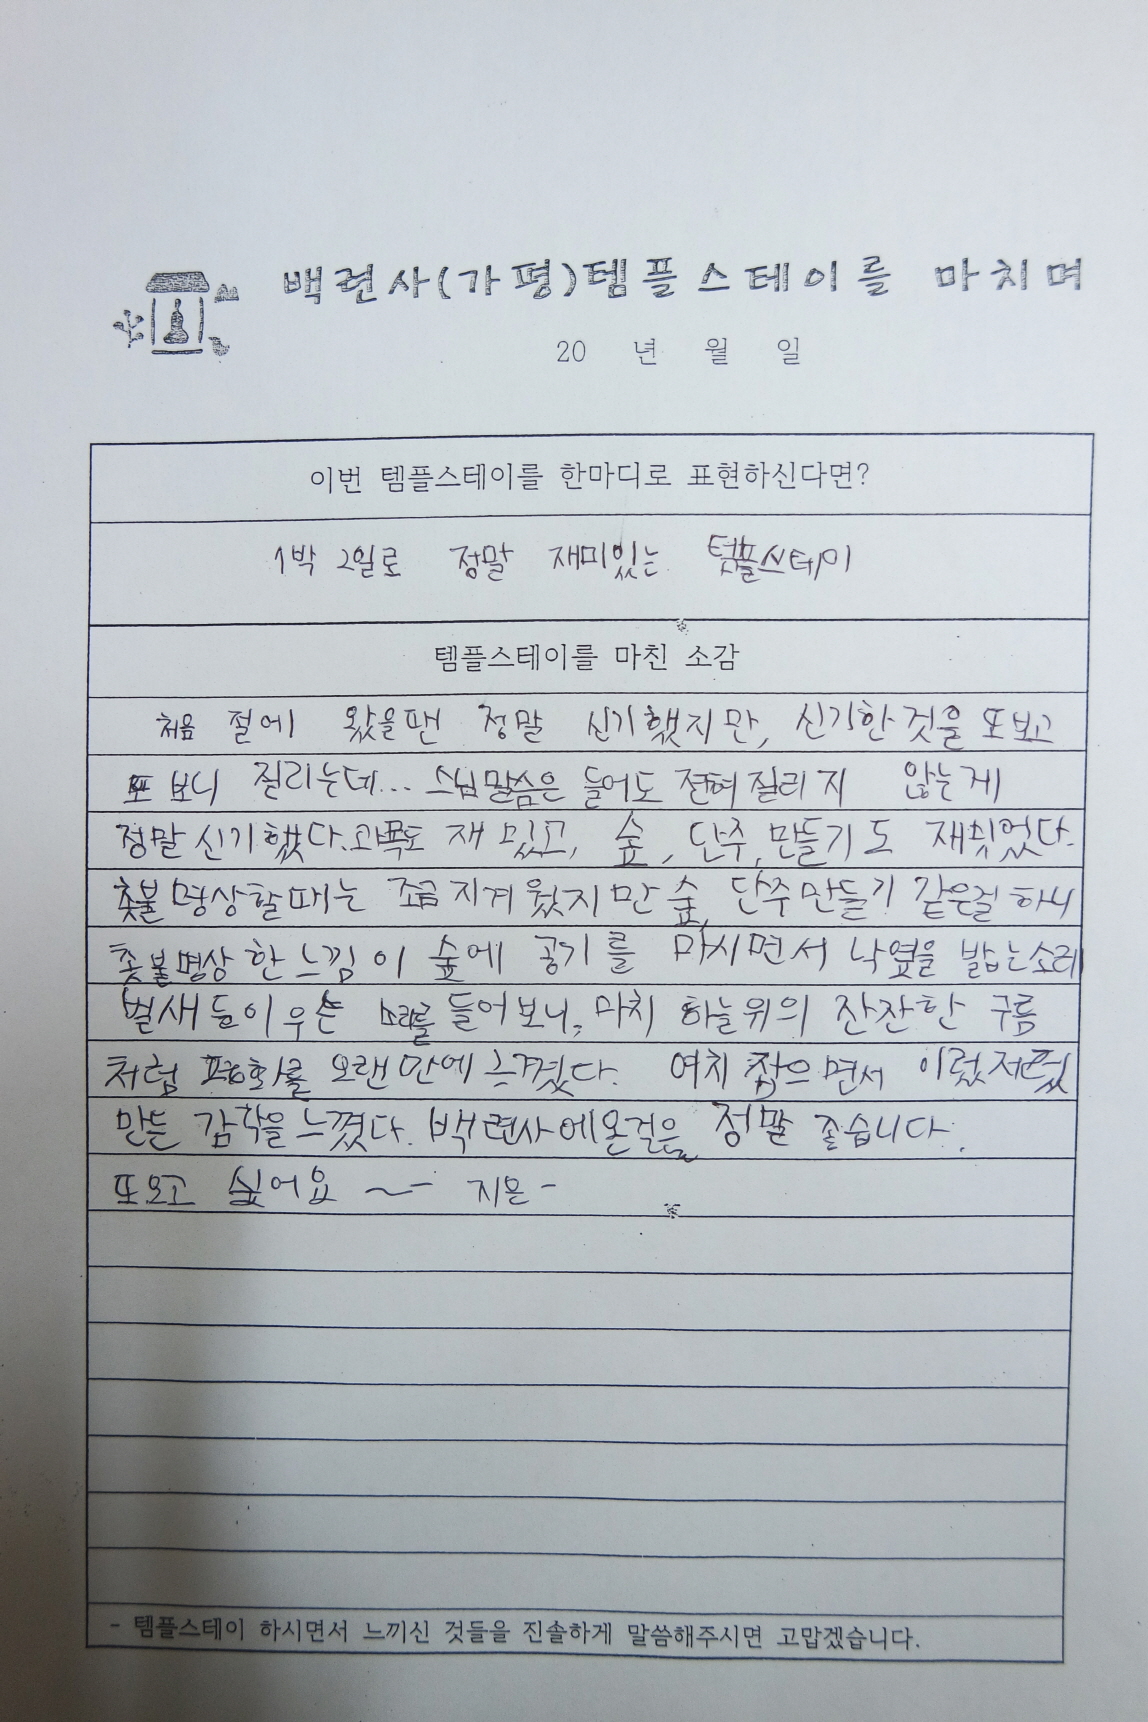 백련사(가평)템플스테이를 마치며
20 년 월 일
이번 템플스테이를 한마디로 표현하신다면?
1박 2일로 정말 재미있는 템플스테이
템플스테이를 마친 소감
처음 절에 왔을땐 정말 신기했지만, 신기한 것을 또 보고
또 보니 질리는데... 스님말씀은 들어도 전혀 질리지 않는게
정말 신기했다. 재밌고, 숲, 단주, 만들기도 재뮜었다.
촛불 명상할때는 조금 지겨웠지만 숲, 단주만들기 같은걸 하니
촛불명상 한 느낌이 숲에 공기를 마시면서 낙옆을 밟는소리
벌새들이 우는 소리를 들어보니, 마치 하늘위의 잔잔한 구름
처럼 평화를 오랜만에 느꼈다. 여치 잡으면서 이렀저렀
만든 감각을 느꼈다. 백련사에온걸을 정말 좋습니다.
또오고 싶어요 ~ 지은 -
- 템플스테이 하시면서 느끼신 것들을 진솔하게 말씀해주시면 고맙겠습니다.